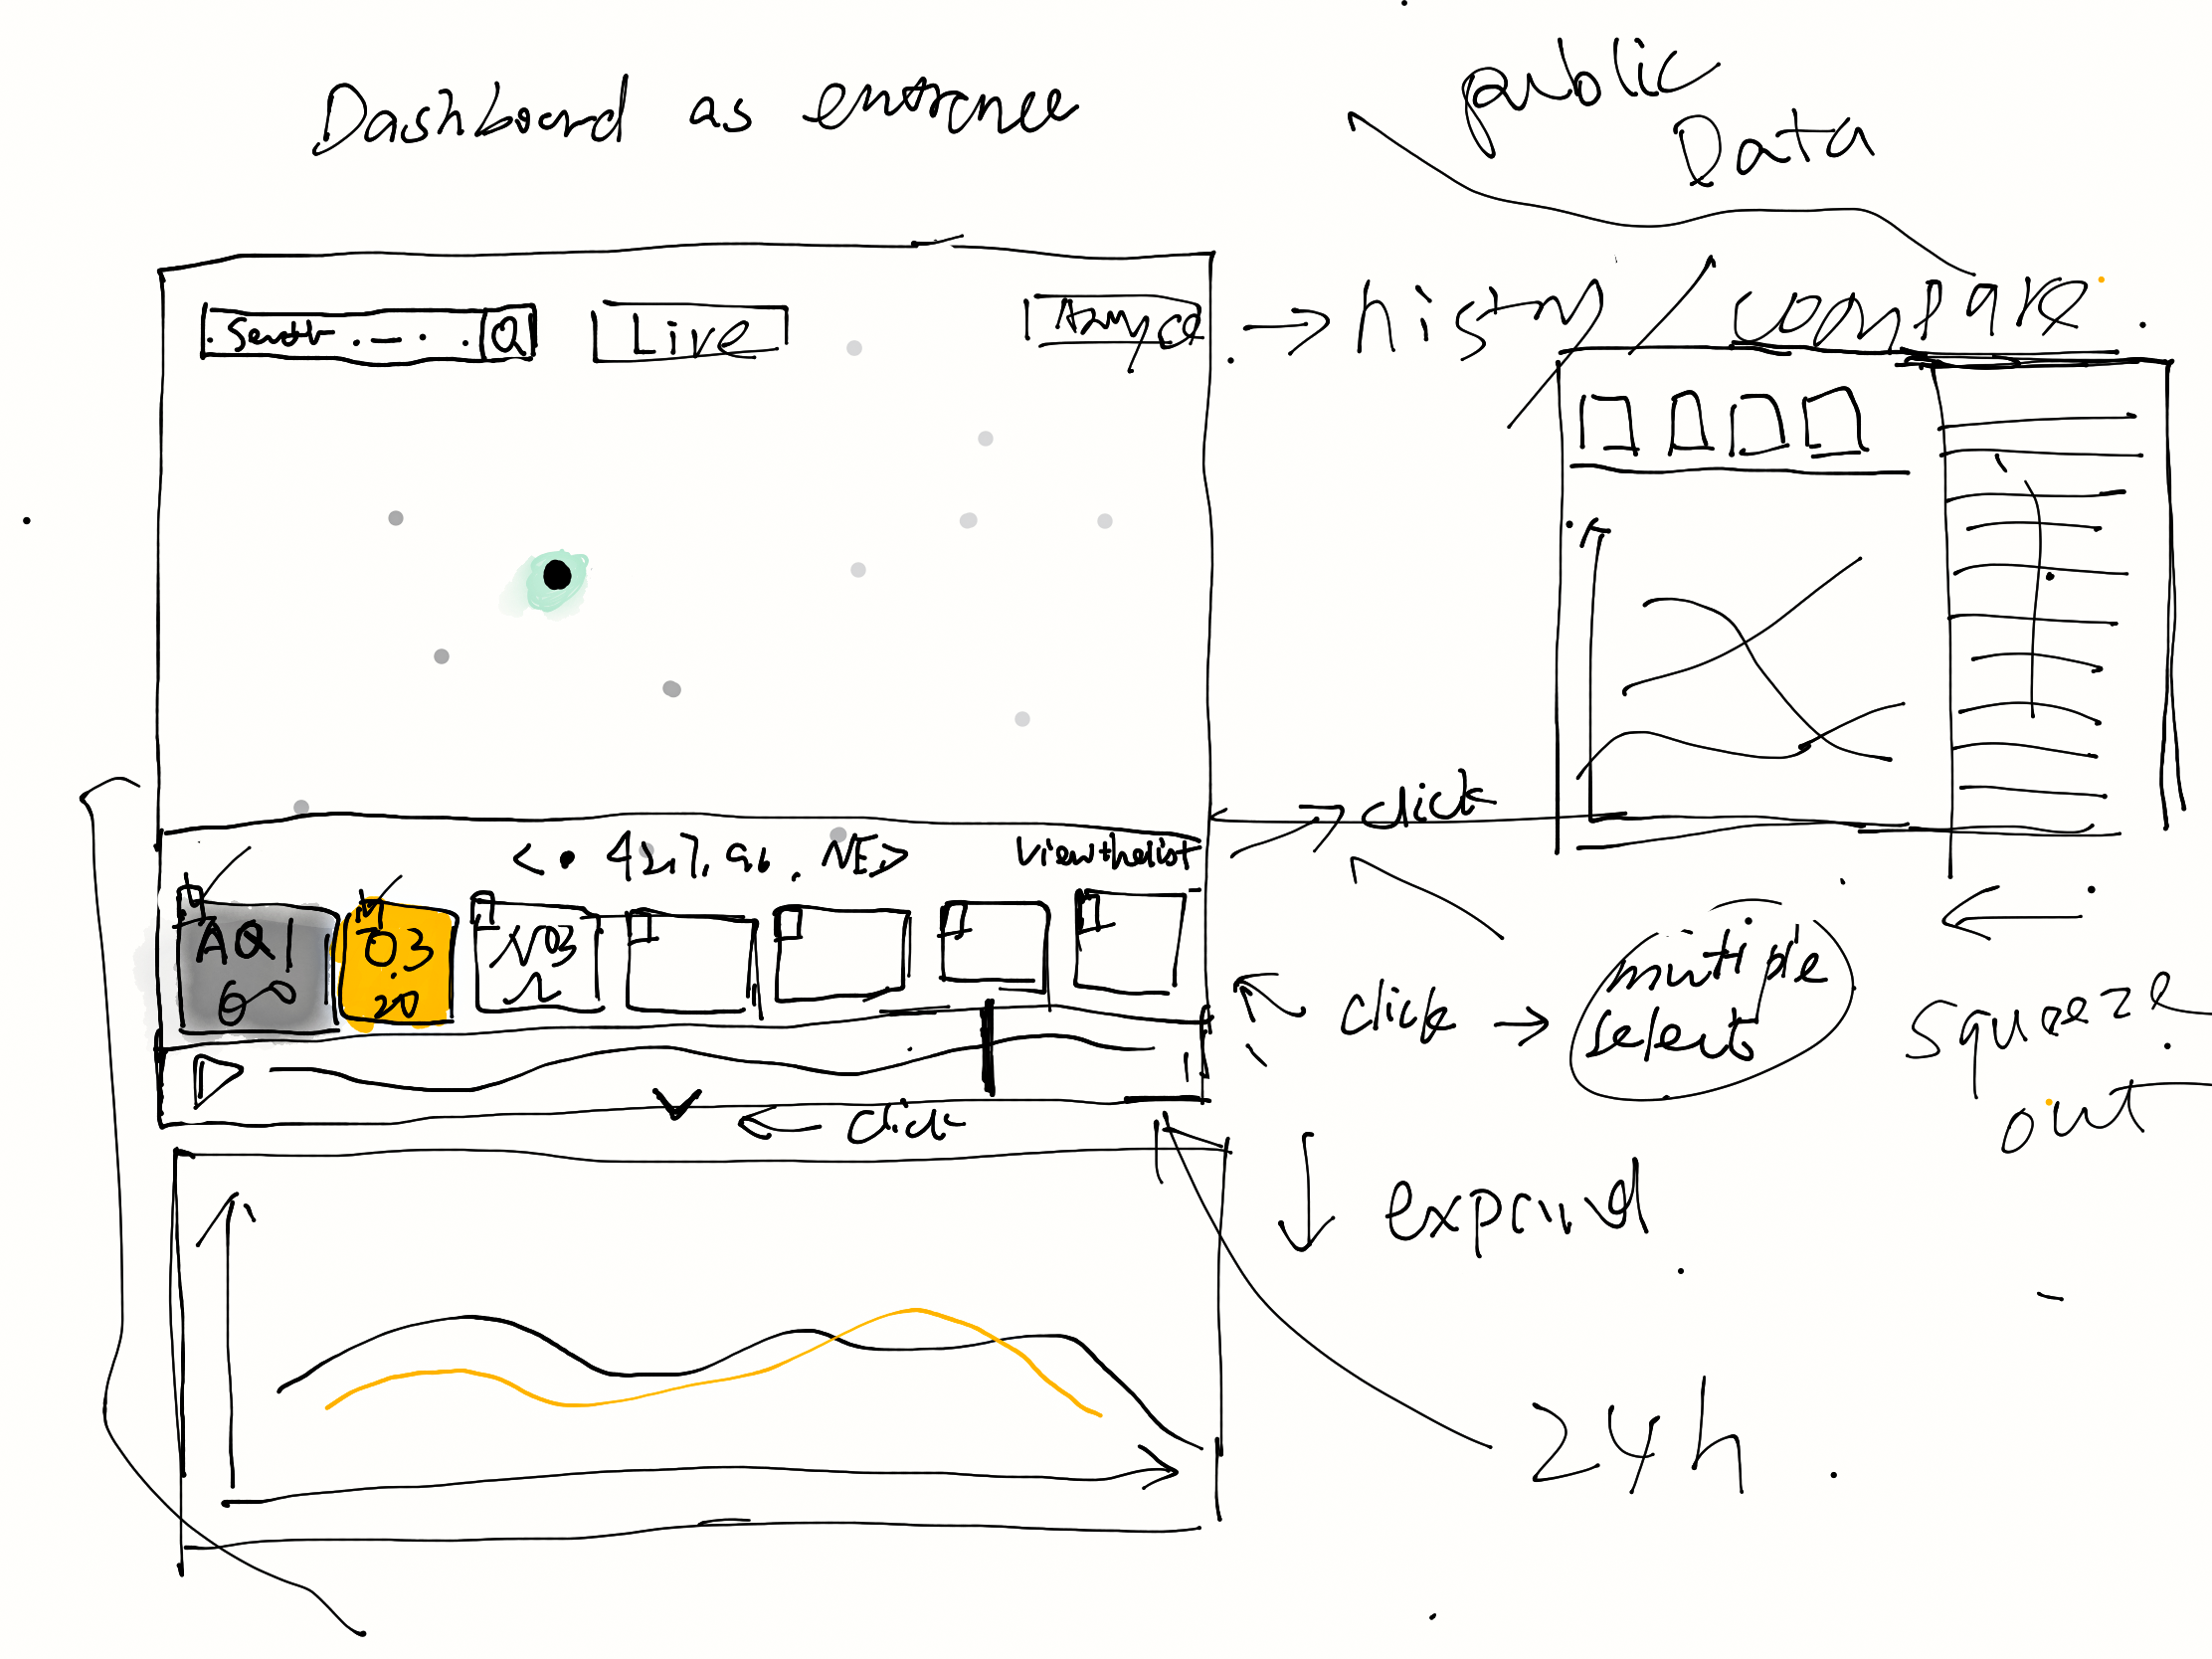 Dashboard as entrance
public
Data
Live
history / compare
click
view the list
AQI
60
O3
20
NO3
click → multiple
select
squeeze
out
click
expand
24h